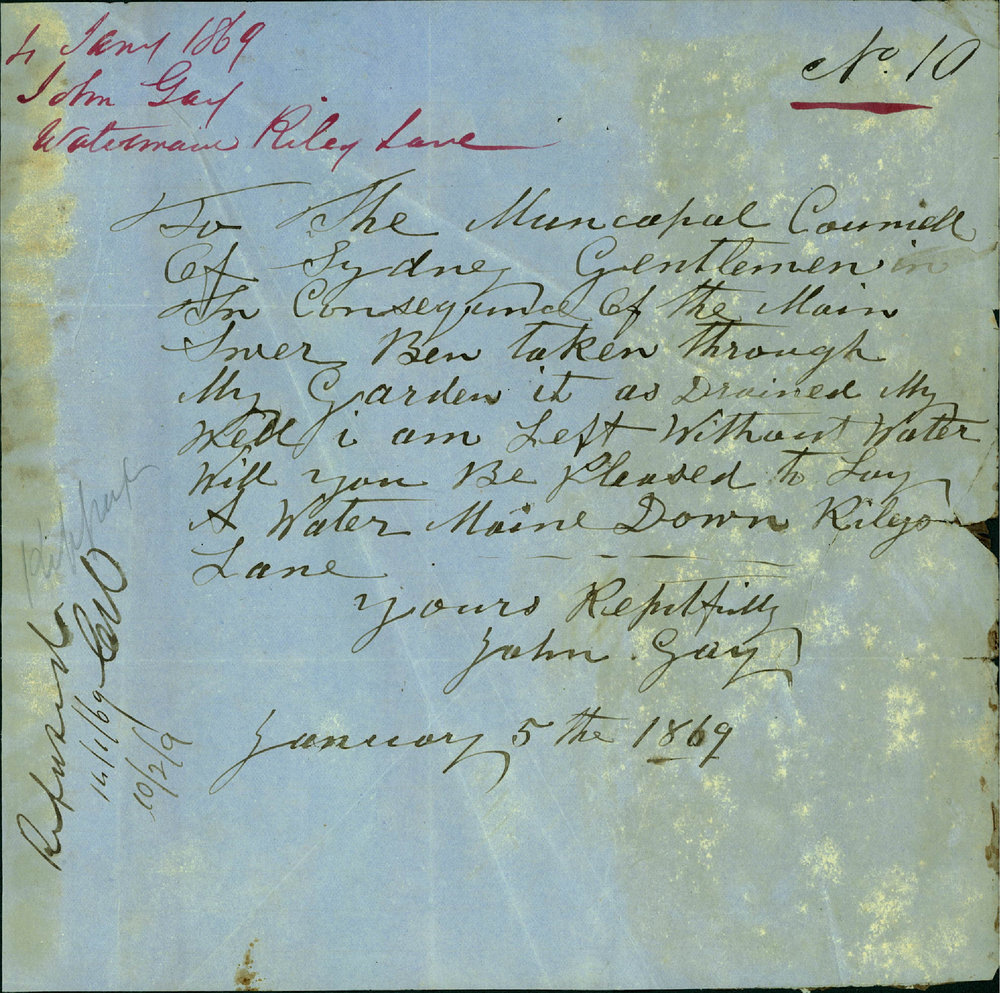 4 Jany 1869
John Gay
Watermain Riley Lane
No. 10
To The Muncapal Councell
Of Sydney Gentlemen in
In Consequnce Of the Main
Swer Ben taken through
My Garden it as Drained My
Well i am Left Without Water
Will you Be Pleased to Lay
A Water Maine Down Rileys
Lane
yours Repctfully
John Gay
January 5 the 1869
Refused
14/1/69
10/2/9